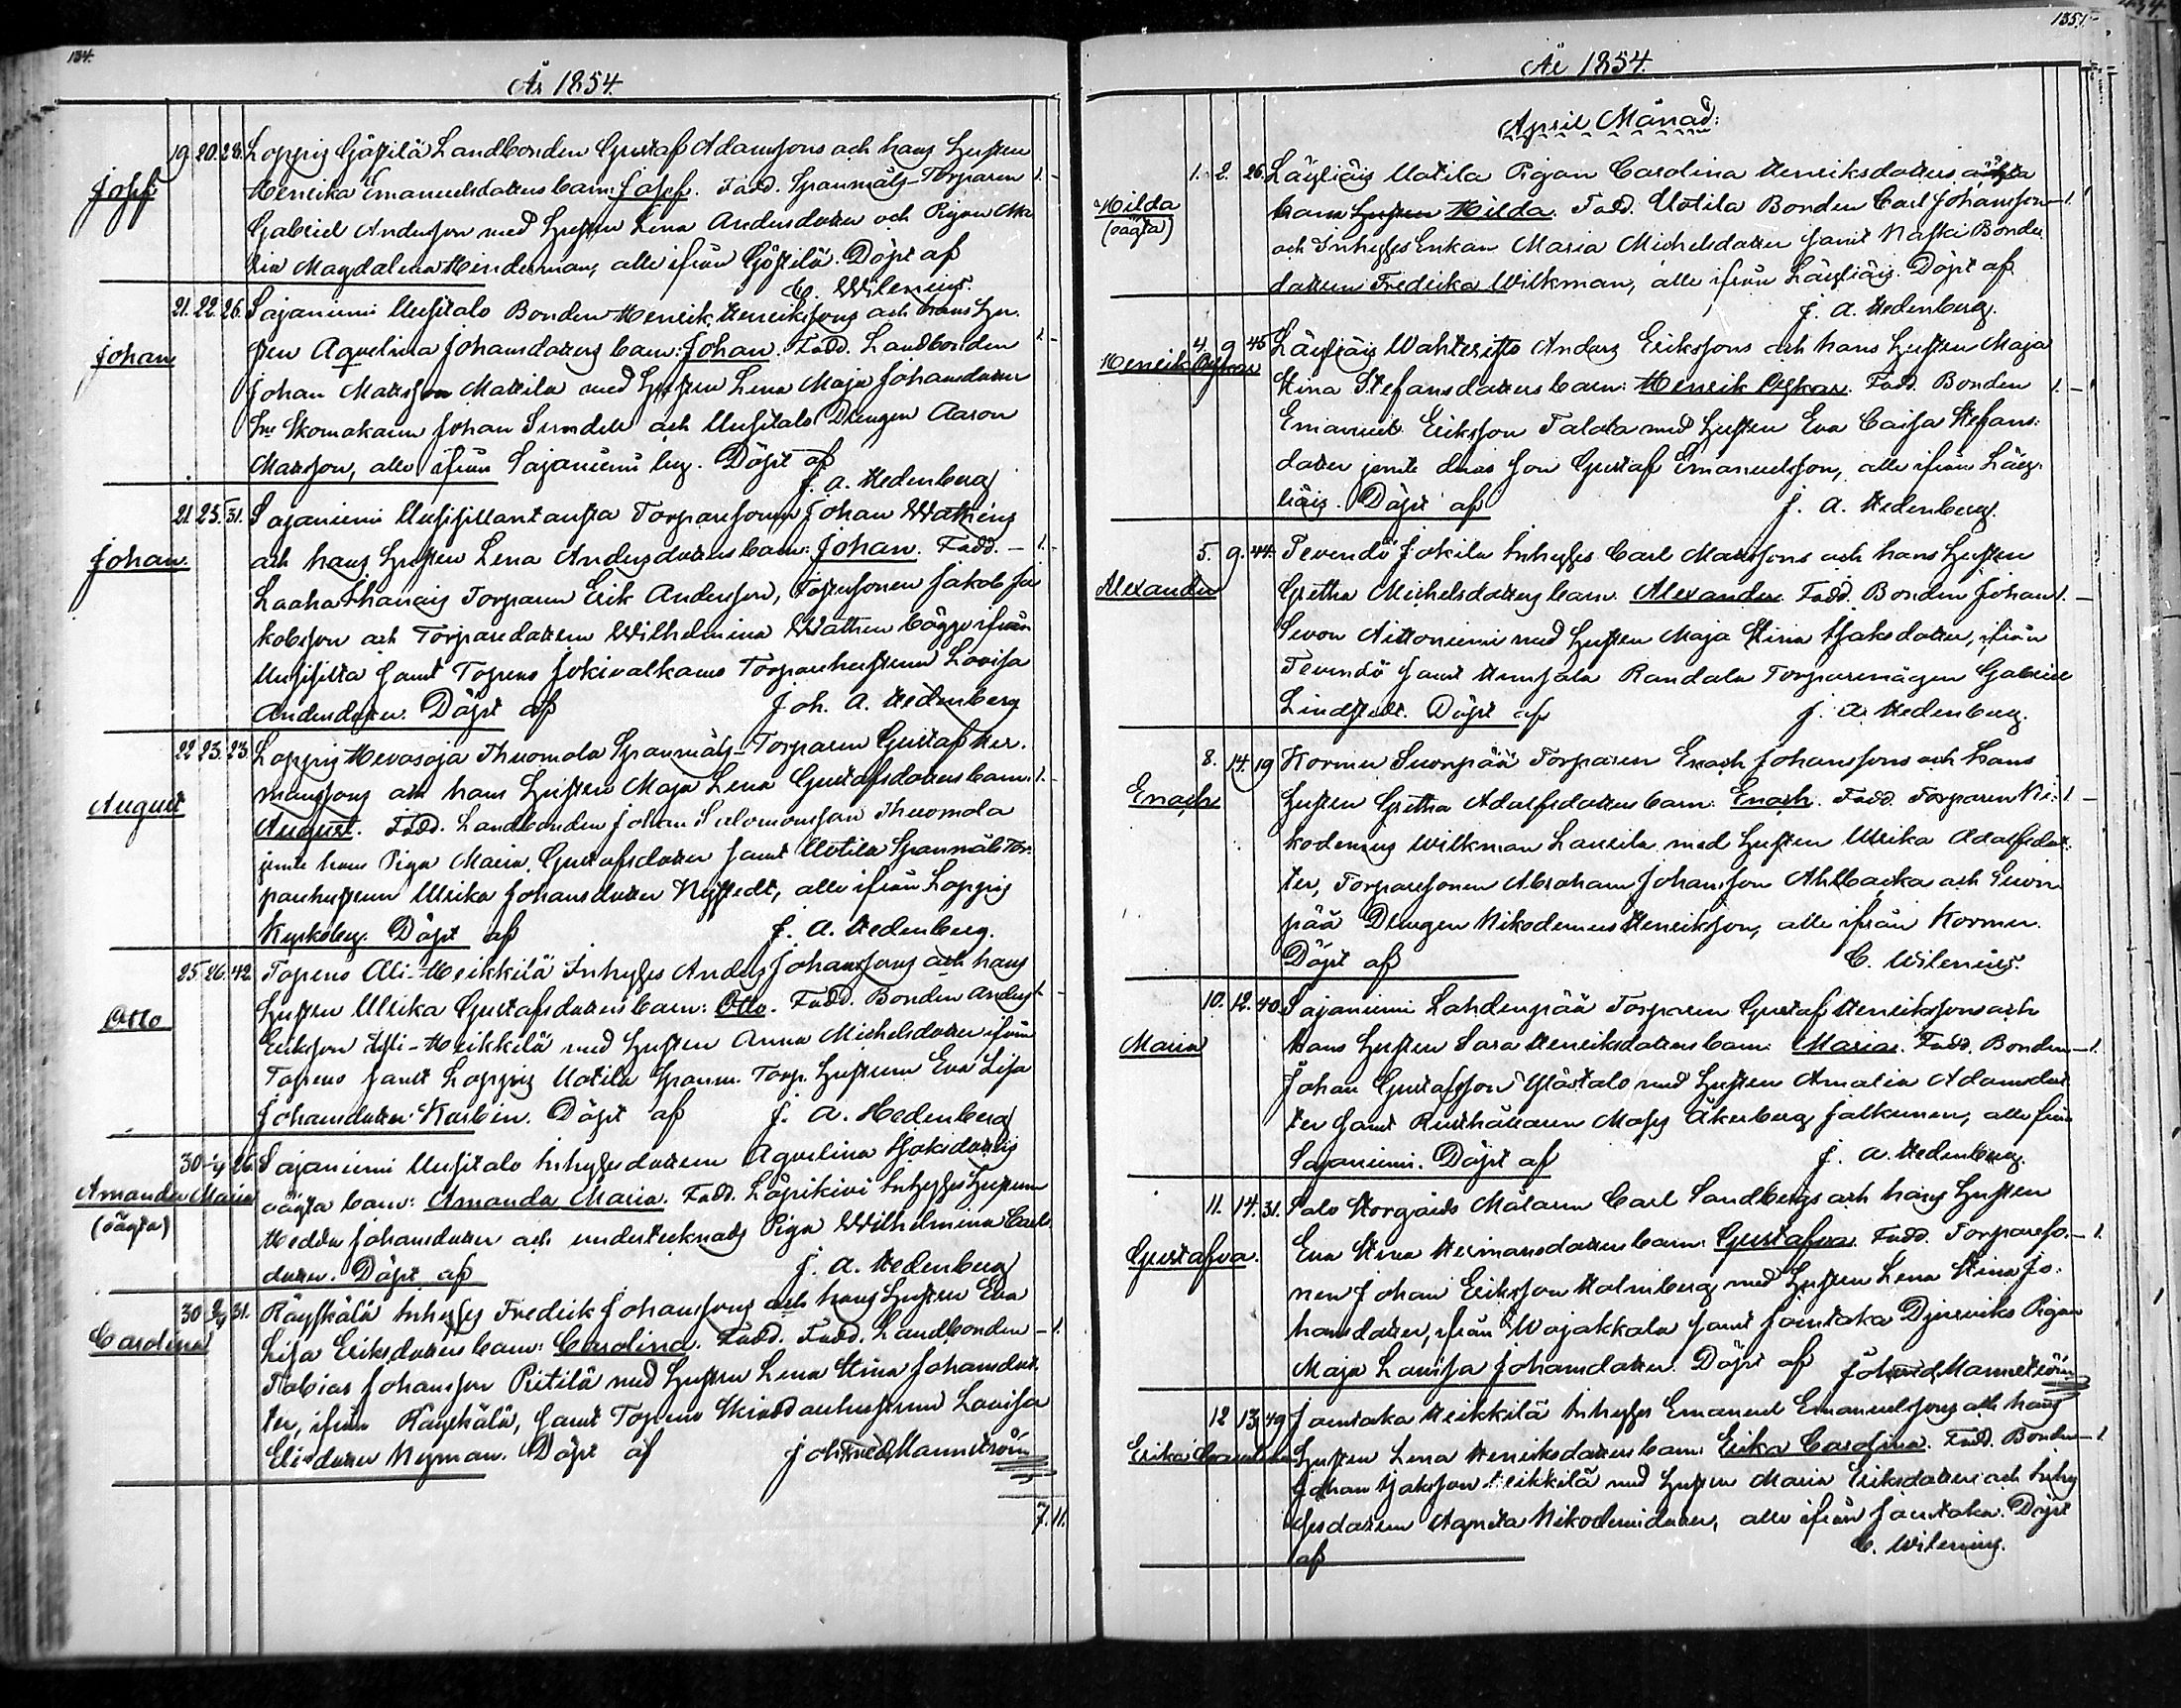 134.
År 1854.
19 20. 28. Loppis Göstilä Landbonden Gustaf Adamssons och hans Hustru
Josef Henrika Emanuelsdotters barn: Josef. Fadd. Spanmåls-Torparen 1. -
Gabriel Andersson med Hustru Lena Andersdotter och Pigan Ma
ria Magdalena Hinderman, alle ifrån Göstilä. Döpt af
C. Wilenius.
21. 22. 26. Sajaniemi Uusitalo Bonden Henrik Henrikssons och hans Hu-
Johan stru Aqvelina Johansdotters barn: Johan. Fadd. Landbonden 1. -
Johan Mattsson Mattila med Hustru Lena Maja Johansdotter
Skomakaren Johan Sundell och Uusitalo Drengen Aaron
Mattsson, alle ifrån Sajaniemi by. Döpt af
J. A. Hedenberg
21. 25. 31. Sajaniemi Torparesonen Johan Wathéns
Johan. och hans Hustru Lena Andersdotters barn: Johan. Fadd. - 1. -
Torparen Erik Andersson, Jakob Ja
kobsson och Torparedottren Wilhelmina Wathen bägge ifrån
samt Topeno Jokivalkama Torparehustrun Lovisa
Andersdotter. Döpt af Joh. A. Hedenberg
22 23. 23. Loppis Hevosoja Thuomola Spanmåls-Torparen Gustaf Her-
manssons och hans Hustru Maja Lena Gustafsdotters barn: 1. -
August August. Fadd. Landbonden Johan Salomonsson Thuomola
jemte hans Piga Maria Gustafsdotter samt Uotila Spanmåls Tor-
parehustrun Ulrika Johansdotter Nystedt, alle ifrån Loppis
Kyrkoby. Döpt af J. A. Hedenberg.
25. 26. 42. Topeno Ali-Heikkilä Inhyses Anders Johanssons och hans
Otto Hustru Ulrika Gustafsdotters barn: Otto. Fadd. Bonden Anders 1. -
Eriksson Ali-Heikkilä med Hustru Anna Michelsdotter ifrån
Topeno samt Loppis Uotila Spanm. Torp. Hustrun Eva Lisa
Johansdotter Karbin. Döpt af J. A. Hedenberg
30 1/4 26 Sajaniemi Uusitalo Inhysesdottren Aqvelina Isaksdotters
Amanda Maria oägta barn: Amanda Maria. Fadd. Läpikivi Inhyses Hustrun
(oägta) Hedda Johansdotter och undertecknads Piga Wilhelmina Carls
dotter. Döpt af J. A. Hedenberg
30 2/4 31. Räyskälä Inhyses Fredrik Johanssons och hans Hustru Eva
Carolina Lisa Eriksdotters barn: Carolina. Fadd. Fadd. Landbonden - 1.
Tobias Johansson Pietilä med Hustru Lena Stina Johansdot
ter, ifrån Räyskälä, samt Topeno Louisa
Elisdotter Nyman. Döpt af Joh. Fred. Mannström
7. 11.
135.
År 1854.
April Månad.
1. 2. 26. Läyliäis Uotila Pigan Carolina Henriksdotters oägta
Hilda barn Hilda. Fadd. Uotila Bonden Carl Johansson - 1.
(oägta) och Inhyses Enkan Maria Michelsdotter samt Bonde
dottren Fredrika Wilkman, alle ifrån Läyliäis. Döpt af
J. A. Hedenberg.
4. 9 45 Läyliäis Anders Erikssons och hans Hustru Maja
Henrik Oskar Stina Stefansdotters barn: Henrik Oskar. Fadd. Bonden 1. -
Emanuel Eriksson Talola med Hustru Eva Caisa Stefans-
dotter jemte deras son Gustaf Emanuelsson, alle ifrån Läy-
liäis. Döpt af J. A. Hedenberg.
5. 9. 44. Tevendö Jokila Inhyses Carl Mattssons och hans Hustru
Alexander Gretha Michelsdotters barn Alexander. Fadd. Bonden Johan 1. -
Simon Aittoniemi med Hustru Maja Stina Isaksdotter, ifrån
Tevendö samt Randala Torparemågen Gabriel
Lindstedt. Döpt af J. A. Hedenberg.
8. 14. 19 Kormu Suonpää Torparen Enoch Johanssons och hans
Enoch Hustru Gretha Adolfsdotters barn: Enoch. Fadd. Torparen Ni- 1. -
kodemus Wilkman Laurila med Hustru Ulrika Adolfsdot-
ter, Torparesonen Abraham Johansson Ahlbacka och Suon
pää Drengen Nikodemus Henriksson, alle ifrån Kormu.
Döpt af C. Wilenius.
10. 12. 40. Sajaniemi Lahdenpää Torparen Gustaf Henrikssons och
Maria hans Hustru Sara Henriksdotters barn: Maria. Fadd. Bonden - 1.
Johan Gustafsson Ylöstalo med Hustru Amalia Adamsdot
ter samt Rusthållaren Moses Åkerberg Jalkunen, alle från
Sajaniemi. Döpt af J. A. Hedenberg.
11. 14. 31. Salo Storgårds Målaren Carl Sandbergs och hans Hustru
Gustafva. Eva Stina Hermansdotters barn: Gustafva. Fadd. Torpareso- - 1.
nen Johan Eriksson Holmberg med Hustru Lena Stina Jo-
hansdotter, ifrån Wojakkala samt Jämtaka Pigan
Maja Lovisa Johansdotter. Döpt af Joh. Fred. Mannström
12 13 49 Jämtaka Heikkilä Inhyses Emanuel Emanuelssons och hans
Erika Carolina Hustru Lena Henriksdotters barn: Erika Carolina. Fadd. Bonden - 1.
Johan Isaksson Heikkilä med Hustru Maria Eriksdotter och Inhy
sesdottren Agneta Nikodemidotter, alle ifrån Jämtaka. Döpt
af C. Wilenius.